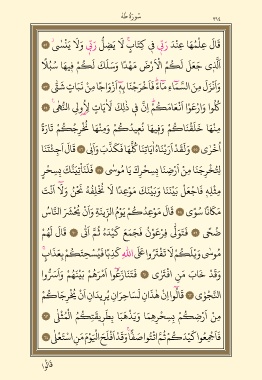 سُورَةُ طٰهٰ
٣١٤
قَالَ عِلْمُهَا عِنْدَ رَبّ۪ي ف۪ي كِتَابٍۚ لَا يَضِلُّ رَبّ۪ي وَلَا يَنْسٰىۘ ٥٢
اَلَّذ۪ي جَعَلَ لَكُمُ الْاَرْضَ مَهْدًا وَسَلَكَ لَكُمْ ف۪يهَا سُبُلًا
وَاَنْزَلَ مِنَ السَّمَٓاءِ مَٓاءًۜ فَاَخْرَجْنَا بِه۪ٓ اَزْوَاجًا مِنْ نَبَاتٍ شَتّٰى ٥٣
كُلُوا وَارْعَوْا اَنْعَامَكُمْۜ اِنَّ ف۪ي ذٰلِكَ لَاٰيَاتٍ لِاُو۬لِي النُّهٰى۟ ٥٤
مِنْهَا خَلَقْنَاكُمْ وَف۪يهَا نُع۪يدُكُمْ وَمِنْهَا نُخْرِجُكُمْ تَارَةً
اُخْرٰى ٥٥ وَلَقَدْ اَرَيْنَاهُ اٰيَاتِنَا كُلَّهَا فَكَذَّبَ وَاَبٰى ٥٦ قَالَ اَجِئْتَنَا
لِتُخْرِجَنَا مِنْ اَرْضِنَا بِسِحْرِكَ يَا مُوسٰى ٥٧ فَلَنَأْتِيَنَّكَ بِسِحْرٍ
مِثْلِه۪ فَاجْعَلْ بَيْنَنَا وَبَيْنَكَ مَوْعِدًا لَا نُخْلِفُهُ نَحْنُ وَلَٓا اَنْتَ
مَكَانًا سُوًى ٥٨ قَالَ مَوْعِدُكُمْ يَوْمُ الزّ۪ينَةِ وَاَنْ يُحْشَرَ النَّاسُ
ضُحًى ٥٩ فَتَوَلّٰى فِرْعَوْنُ فَجَمَعَ كَيْدَهُ ثُمَّ اَتٰى ٦٠ قَالَ لَهُمْ
مُوسٰى وَيْلَكُمْ لَا تَفْتَرُوا عَلَى اللّٰهِ كَذِبًا فَيُسْحِتَكُمْ بِعَذَابٍۚ
وَقَدْ خَابَ مَنِ افْتَرٰى ٦١ فَتَنَازَعُٓوا اَمْرَهُمْ بَيْنَهُمْ وَاَسَرُّوا
النَّجْوٰى ٦٢ قَالُٓوا اِنْ هٰذَانِ لَسَاحِرَانِ يُر۪يدَانِ اَنْ يُخْرِجَاكُمْ
مِنْ اَرْضِكُمْ بِسِحْرِهِمَا وَيَذْهَبَا بِطَر۪يقَتِكُمُ الْمُثْلٰى ٦٣
فَاَجْمِعُوا كَيْدَكُمْ ثُمَّ ائْتُوا صَفًّاۚ وَقَدْ اَفْلَحَ الْيَوْمَ مَنِ اسْتَعْلٰى ٦٤
قَالُوا